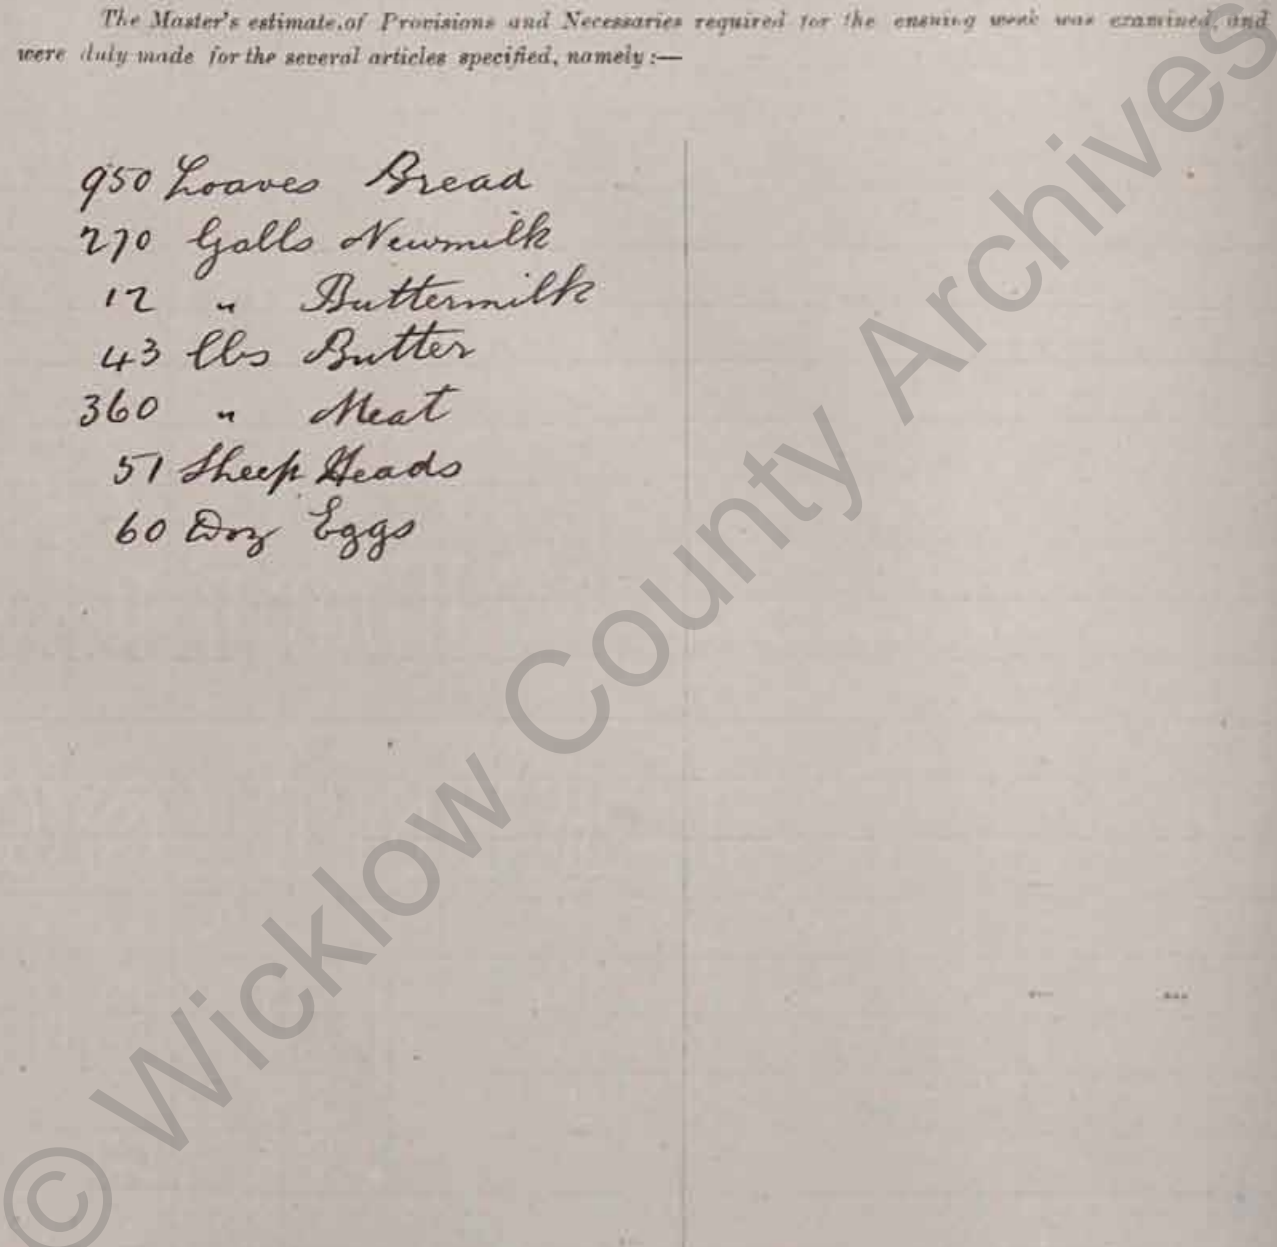 The Master's estimate of Provisions and Necessaries required for the ensuing week was examined, and
were duly made for the several articles specified, namely :—
950 Loaves Bread
270 Galls Newmilk
12 " Buttermilk
43 lbs Butter
360 " Meat
51 Sheep Heads
60 Doz Eggs
© Wicklow County Archives